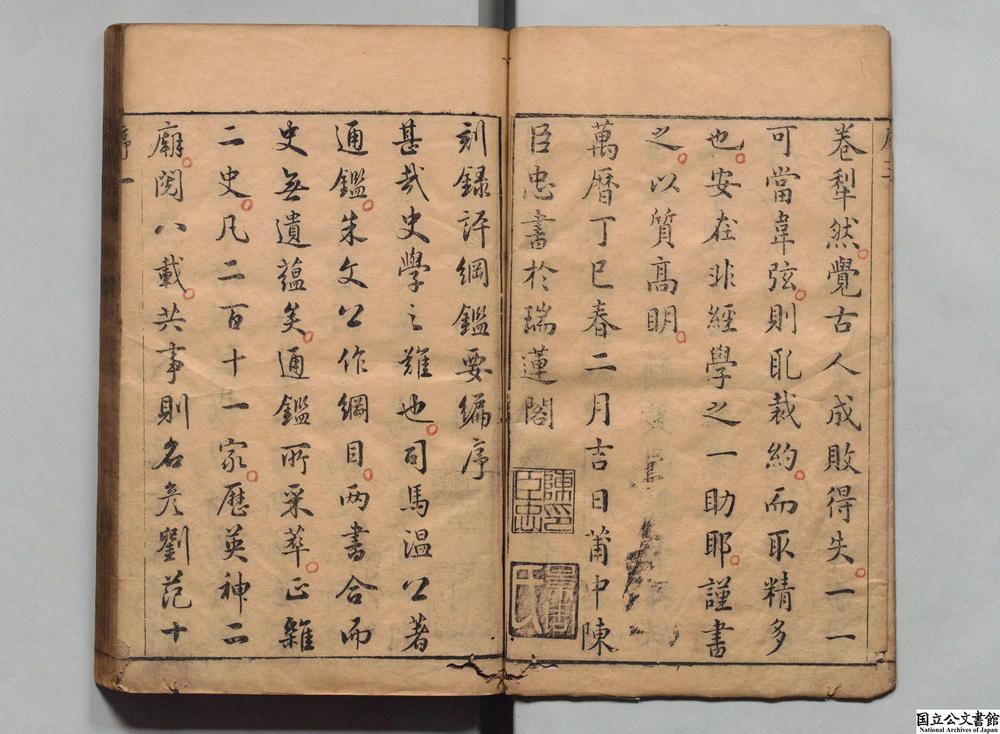 卷犁然覺古人成敗得失一一
可當韋弦則既裁約而取精多
也安在非經學之一助耶謹書
之以質高明
萬曆丁巳春二月吉日莆中陳
臣忠書於瑞蓮閣
陳印臣忠
刻錄評綱鑑要編序
甚哉史學之難也司馬溫公著
通鑑朱文公作綱目兩書合而
史無遺蘊矣通鑑所采萃正雜
二史凡二百十一家歷英神二
廟閱八載共事則名彥劉范十
序一
国立公文書館
National Archives of Japan